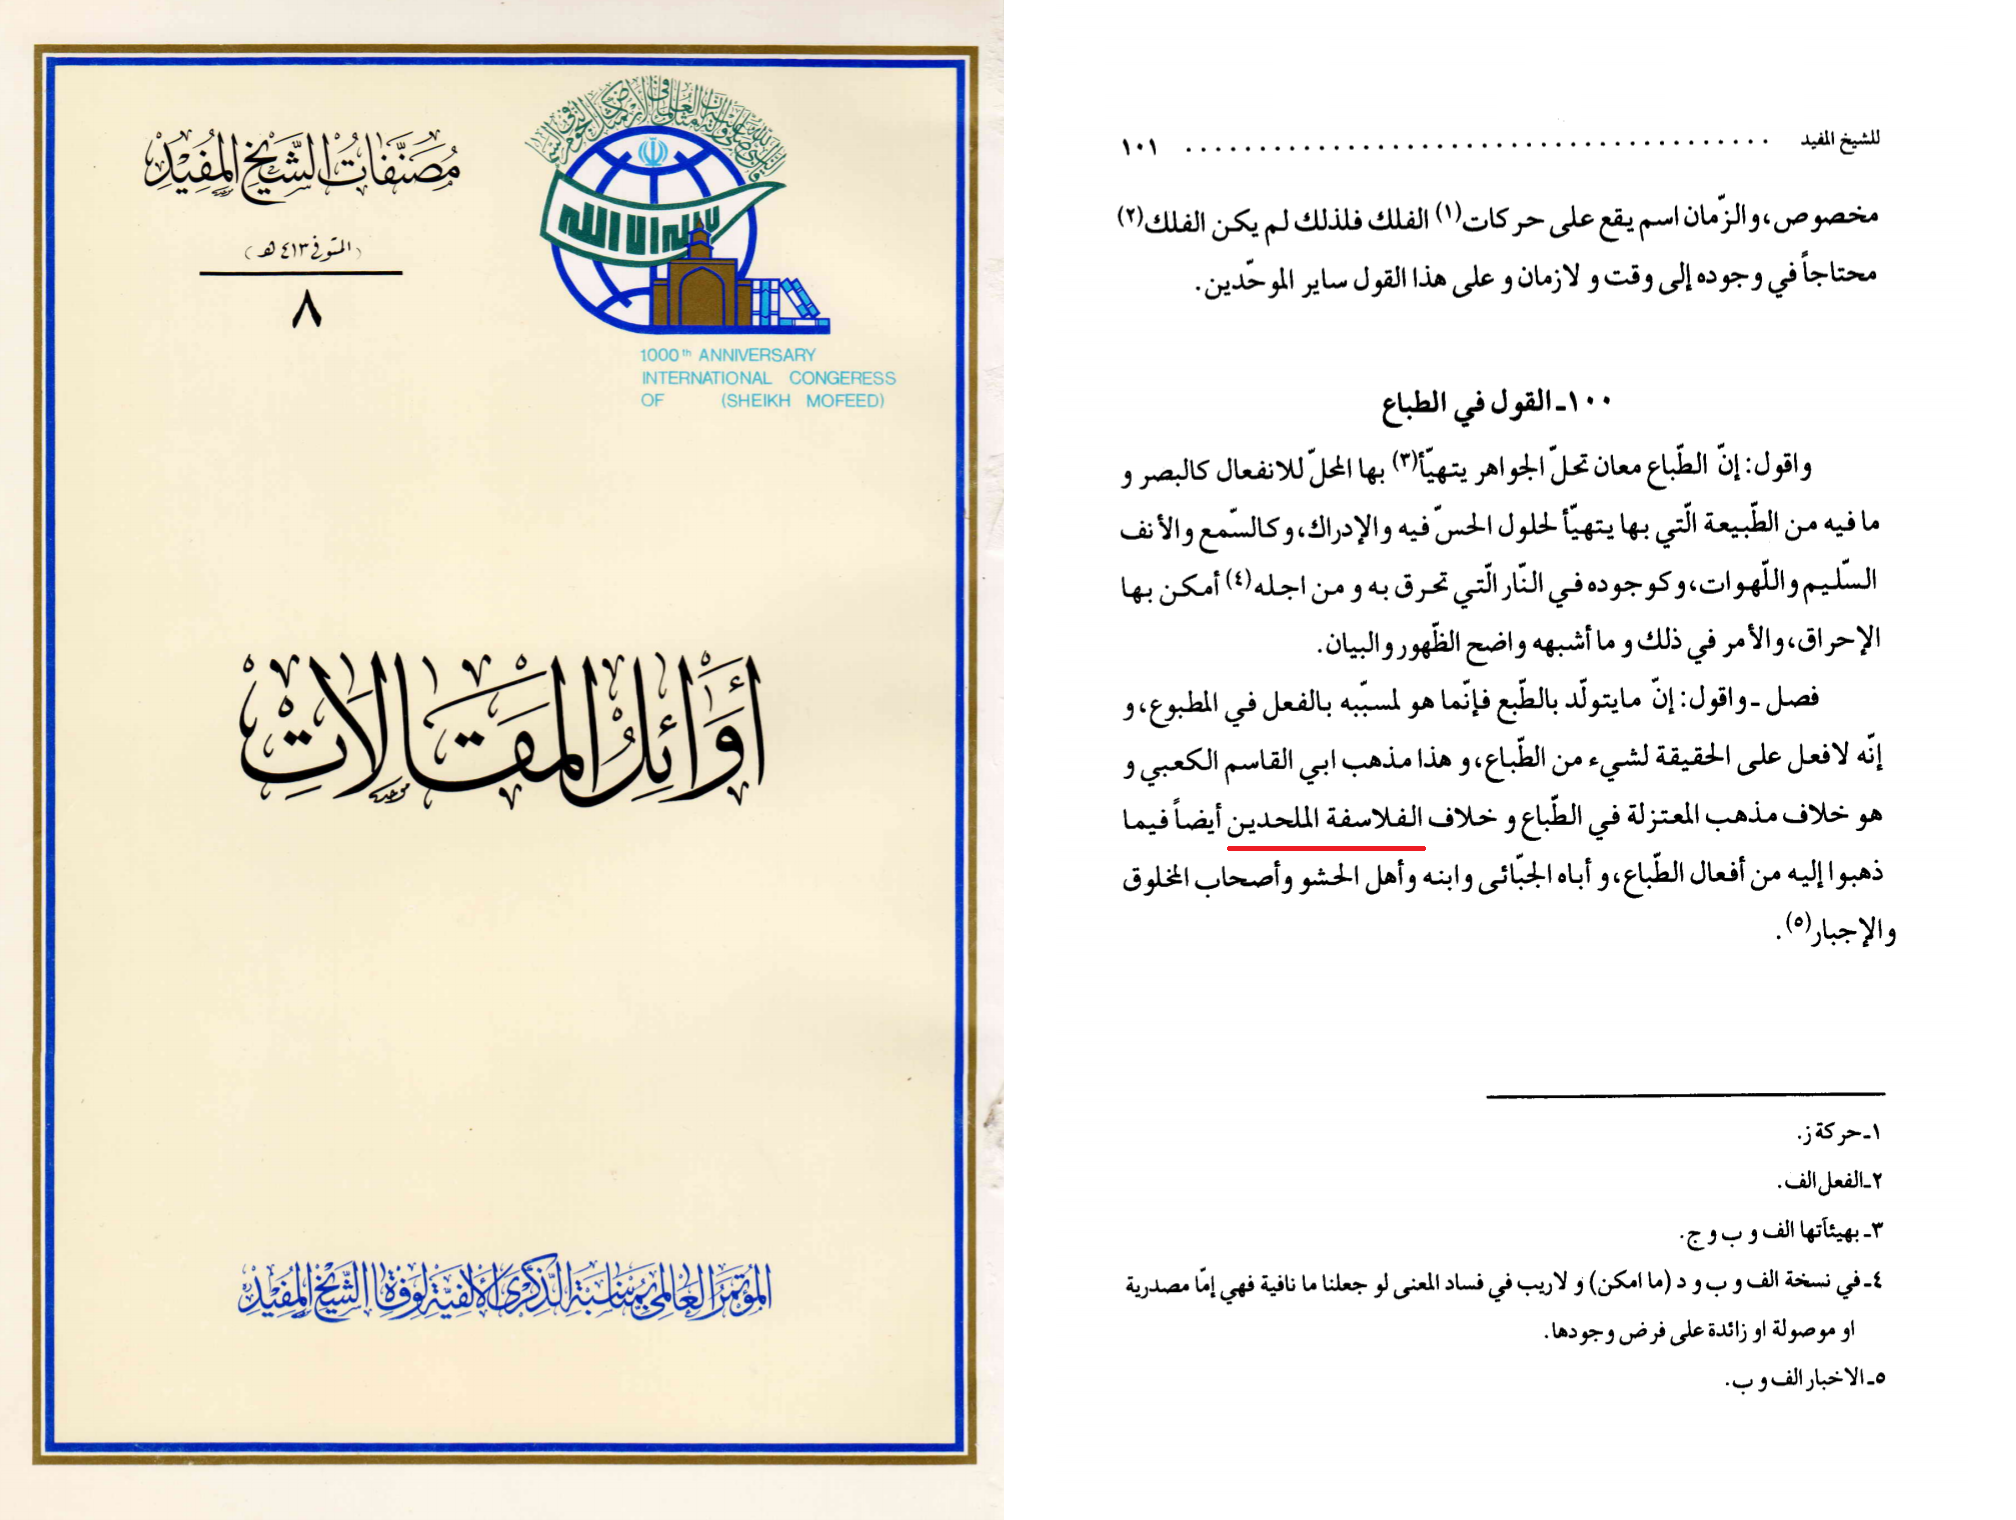 مصنّفات الشّيخ المفيد
(المتوفى ٤١٣ هـ)
٨
لا إله إلا الله
1000th ANNIVERSARY
INTERNATIONAL CONGERESS
OF (SHEIKH MOFEED)
أوائل المقالات
المؤتمر العالمي بمناسبة الذّكرى الألفيّة لوفاة الشّيخ المفيد
للشيخ المفيد ........................................ ١٠١
مخصوص، والزّمان اسم يقع على حركات(١) الفلك فلذلك لم يكن الفلك(٢)
محتاجاً في وجوده إلى وقت و لازمان و على هذا القول ساير الموحّدين.
١٠٠ـ القول في الطباع
واقول: إنّ الطّباع معان تحلّ الجواهر يتهيّأ(٣) بها المحلّ للانفعال كالبصر و
ما فيه من الطّبيعة الّتي بها يتهيّأ لحلول الحسّ فيه والإدراك، وكالسّمع والأنف
السّليم واللّهوات، وكوجوده في النّار الّتي تحرق به و من اجله(٤) أمكن بها
الإحراق، والأمر في ذلك و ما أشبهه واضح الظّهور والبيان.
فصل ـ واقول: إنّ مايتولّد بالطّبع فإنّما هو لمسبّبه بالفعل في المطبوع، و
إنّه لافعل على الحقيقة لشيء من الطّباع، و هذا مذهب ابي القاسم الكعبي و
هو خلاف مذهب المعتزلة في الطّباع و خلاف الفلاسفة الملحدين أيضاً فيما
ذهبوا إليه من أفعال الطّباع، و أباه الجبّائى وابنه وأهل الحشو وأصحاب المخلوق
والإجبار(٥).
١ـ حركة ز.
٢ـ الفعل الف.
٣ـ بهيئآتها الف و ب و ج.
٤ـ في نسخة الف و ب و د (ما امكن) و لاريب في فساد المعنى لو جعلنا ما نافية فهي إمّا مصدرية
او موصولة او زائدة على فرض وجودها.
٥ـ الاخبار الف و ب.